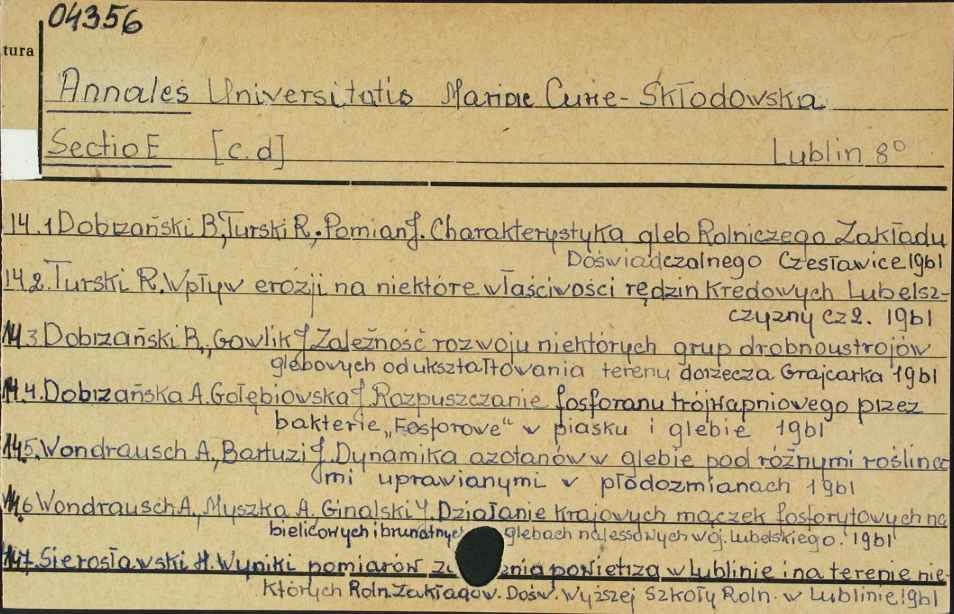 04356
tura
Annales Universitatis Mariae Curie-Skłodowska
Sectio E [c.d] Lublin 8°
14.1 Dobrzański B, Turski R, Pomian J. Charakterystyka gleb Rolniczego Zakładu
Doświadczalnego Czesławice 1961
14.2. Turski R. Wpływ erozji na niektóre właściwości rędzin kredowych Lubelsz-
czyzny cz 2. 1961
14.3. Dobrzański B., Gawlik J Zależność rozwoju niektórych grup drobnoustrojów
glebowych od ukształtowania terenu dorzecza Grajcarka 1961
14.4. Dobrzańska A. Gołębiowska J Rozpuszczanie fosforanu trójwapniowego przez
bakterie „Fosforowe" w piasku i glebie 1961
14.5. Wondrausch A, Bartuzi J. Dynamika azotanów w glebie pod różnymi roślina
mi uprawianymi w płodozmianach 1961
14.6 Wondrausch A, Myszka A. Ginalski Y. Działanie krajowych mączek fosforytowych na
bielicowych i brunatnych glebach nalessowych woj. lubelskiego. 1961
14.7. Sierosławski H. Wyniki pomiarów powietrza w Lublinie i na terenie nie-
których Roln. Zakładów. Dośw. Wyższej Szkoły Roln. w Lublinie 1961